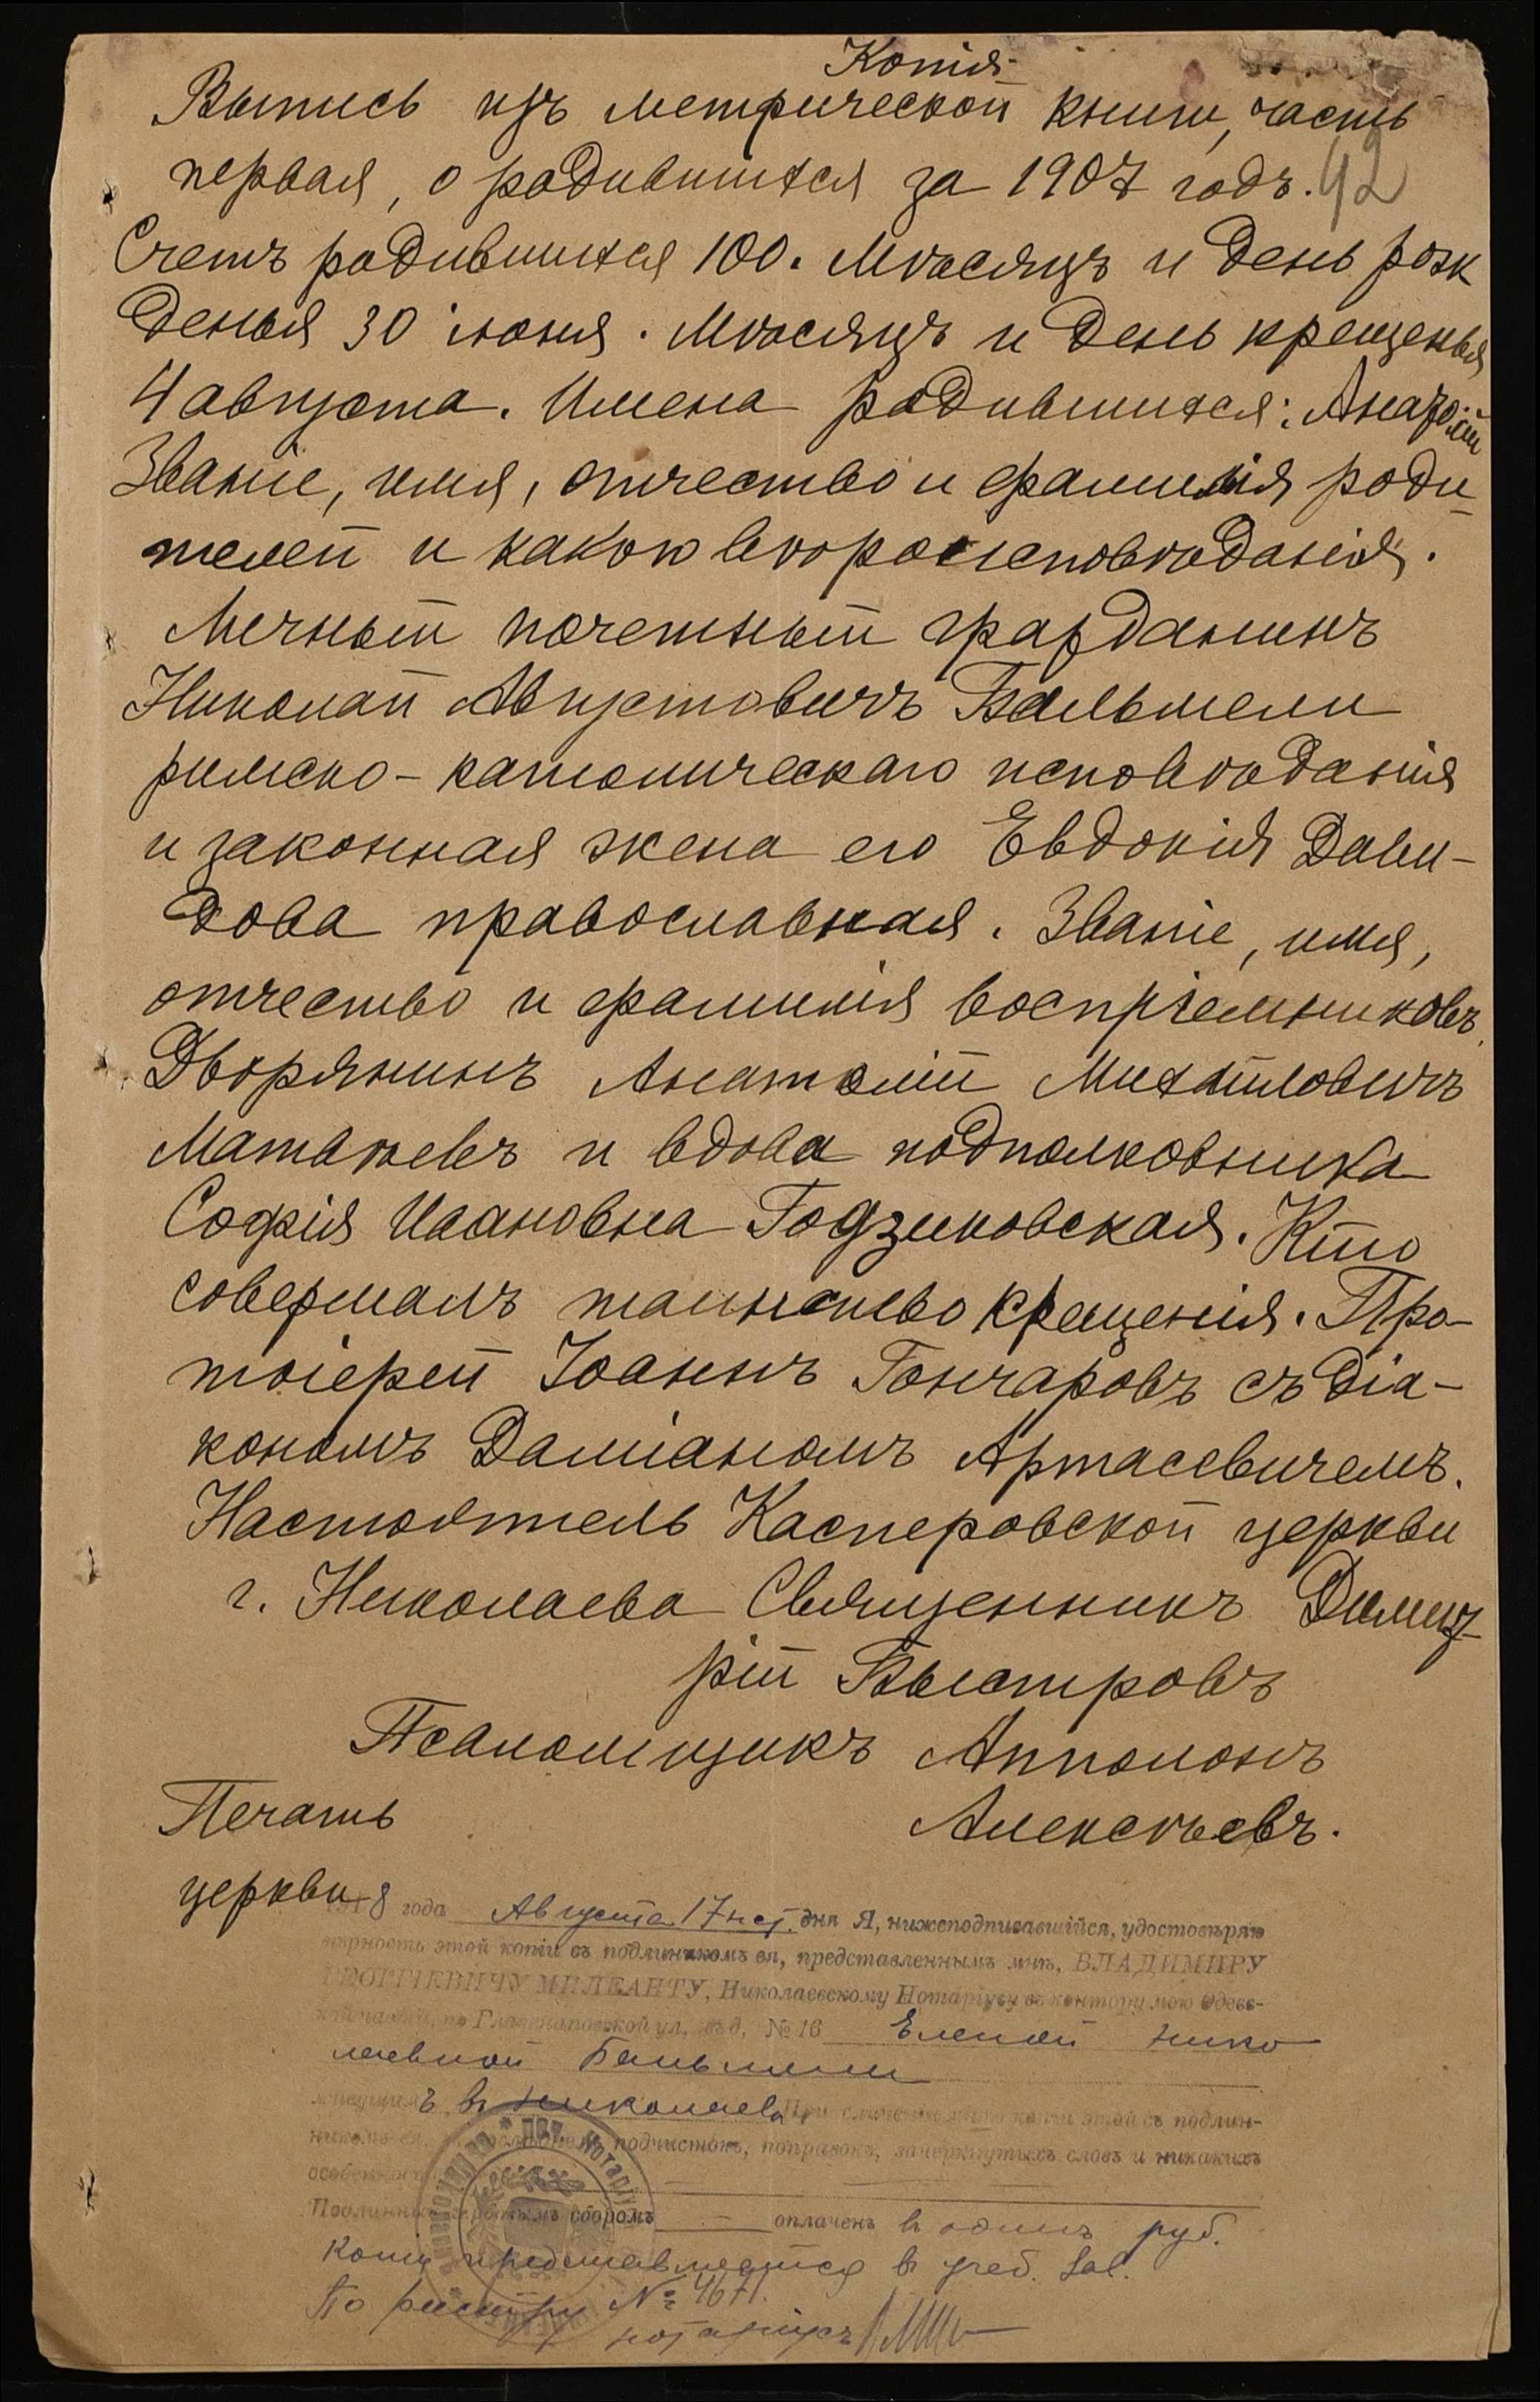 Копія
Выпись изъ метрической книги, часть
первая, о родившихся за 1907 годъ. 42
Счетъ родившихся 100. Мѣсяцъ и день рож
денья 30 іюня. Мѣсяцъ и день крещенья
4 августа. Имена родившихся: Анатолій
Званіе, имя, отчество и фамилія роди-
телей и какою вѣроисповѣданія.
Личный почетный гражданинъ
Николай Августовичъ Бальмели
римско-католическаго исповѣданія
и законная жена его Евдокія Дави-
дова православная. Званіе, имя,
отчество и фамилія воспріемниковъ.
Дворянинъ Анатолій Михайловичъ
Матвѣевъ и вдова подполковника
Софія Ивановна Годзиковская. Кто
совершалъ таинство крещенія. Про-
тоіерей Іоаннъ Гончаровъ съ діа-
кономъ Даміаномъ Артасевичемъ.
Настоятель Касперовской церкви
г. Николаева Священникъ Димит-
рій Быстровъ
Псаломщикъ Апполонъ
Печать
Алексѣевъ.
церкви
1918 года Августа 17 н ст. дня Я, нижеподписавшійся, удостовѣряю
вѣрность этой копіи съ подлинникомъ ея, представленнымъ мнѣ, ВЛАДИМИРУ
ГЕОРГІЕВИЧУ МИЛЕАНТУ, Николаевскому Нотаріусу въ контору мою Одесс-
кой части, по Глазенаповской ул. въ д. № 16 Еленой Нико
лаевной Бальмели
живущимъ в Николаевѣ При сличеніи мною копіи этой съ подлин-
никомъ ея, въ подлинномъ подчистокъ, поправокъ, зачеркнутыхъ словъ и никакихъ
особенностей
Подлинникъ гербовымъ сборомъ оплаченъ в одинъ руб.
Копія представляется в учеб. зав.
По реестру № 4671.
нотаріусъ